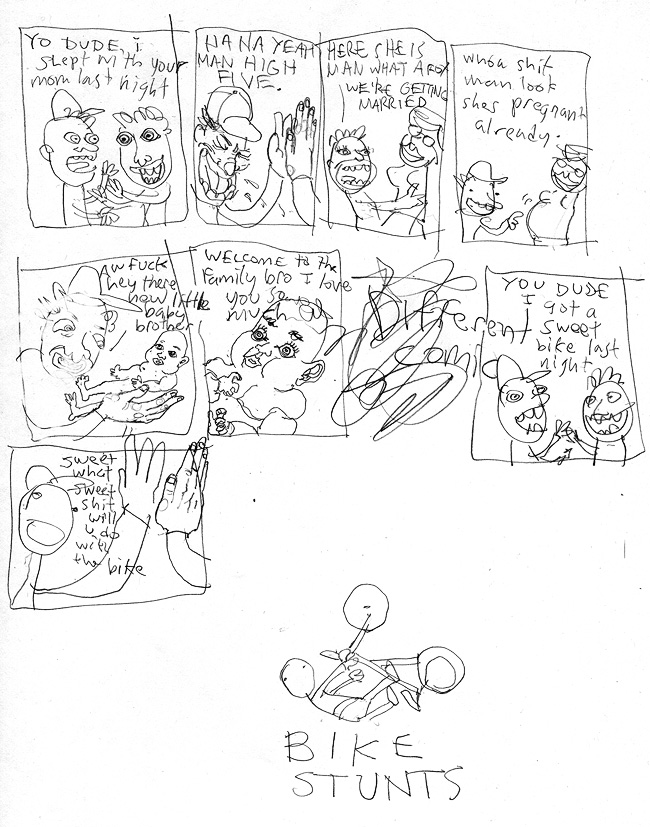 YO DUDE, I
slept with your
mom last night
HA HA YEAH
MAN HIGH
FIVE.
HERE SHE IS
MAN WHAT A FOX
WE'RE GETTING
MARRIED
whoa shit
man look
shes pregnant
already.
AW FUCK
hey there
new little
baby
brother
WELCOME TO the
family bro I love
you so
much
Different
comic
YOU DUDE
I got a
sweet
bike last
night
sweet
what
sweet
shit
will
u do
with
the bike
BIKE
STUNTS